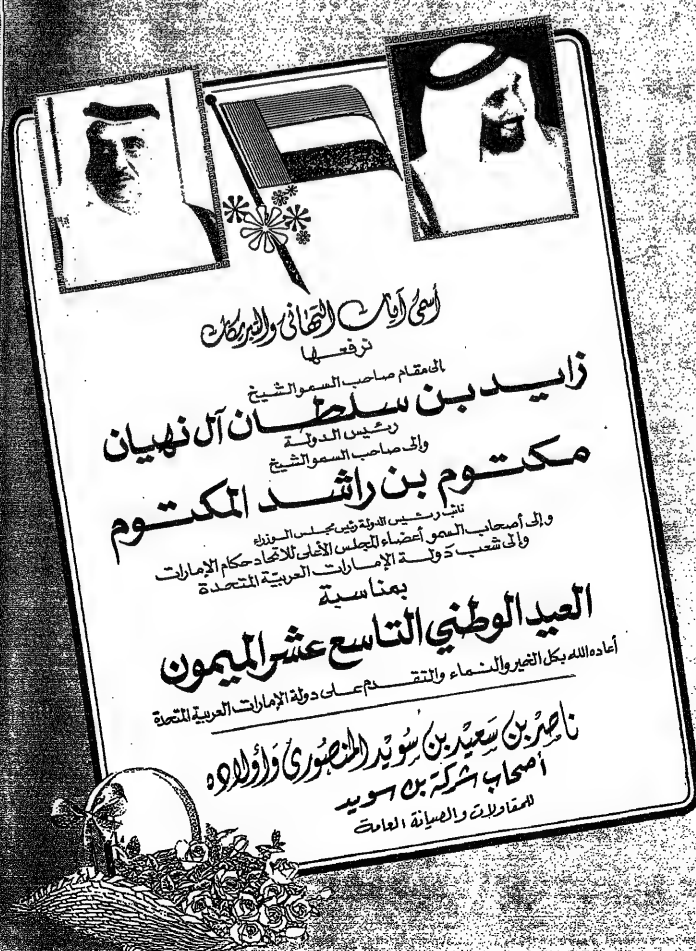 أسمى آيات التهاني والتبريكات
نرفعها
إلى مقام صاحب السمو الشيخ
زايد بن سلطان آل نهيان
رئيس الدولة
وإلى صاحب السمو الشيخ
مكتوم بن راشد المكتوم
نائب رئيس الدولة رئيس مجلس الوزراء
وإلى أصحاب السمو أعضاء المجلس الأعلى للاتحاد حكام الإمارات
وإلى شعب دولة الإمارات العربية المتحدة
بمناسبة
العيد الوطني التاسع عشر الميمون
أعاده الله بكل الخير والنماء والتقدم على دولة الإمارات العربية المتحدة
ناصر بن سعيد بن سويد المنصوري وأولاده
أصحاب شركة بن سويد
للمقاولات والصيانة العامة